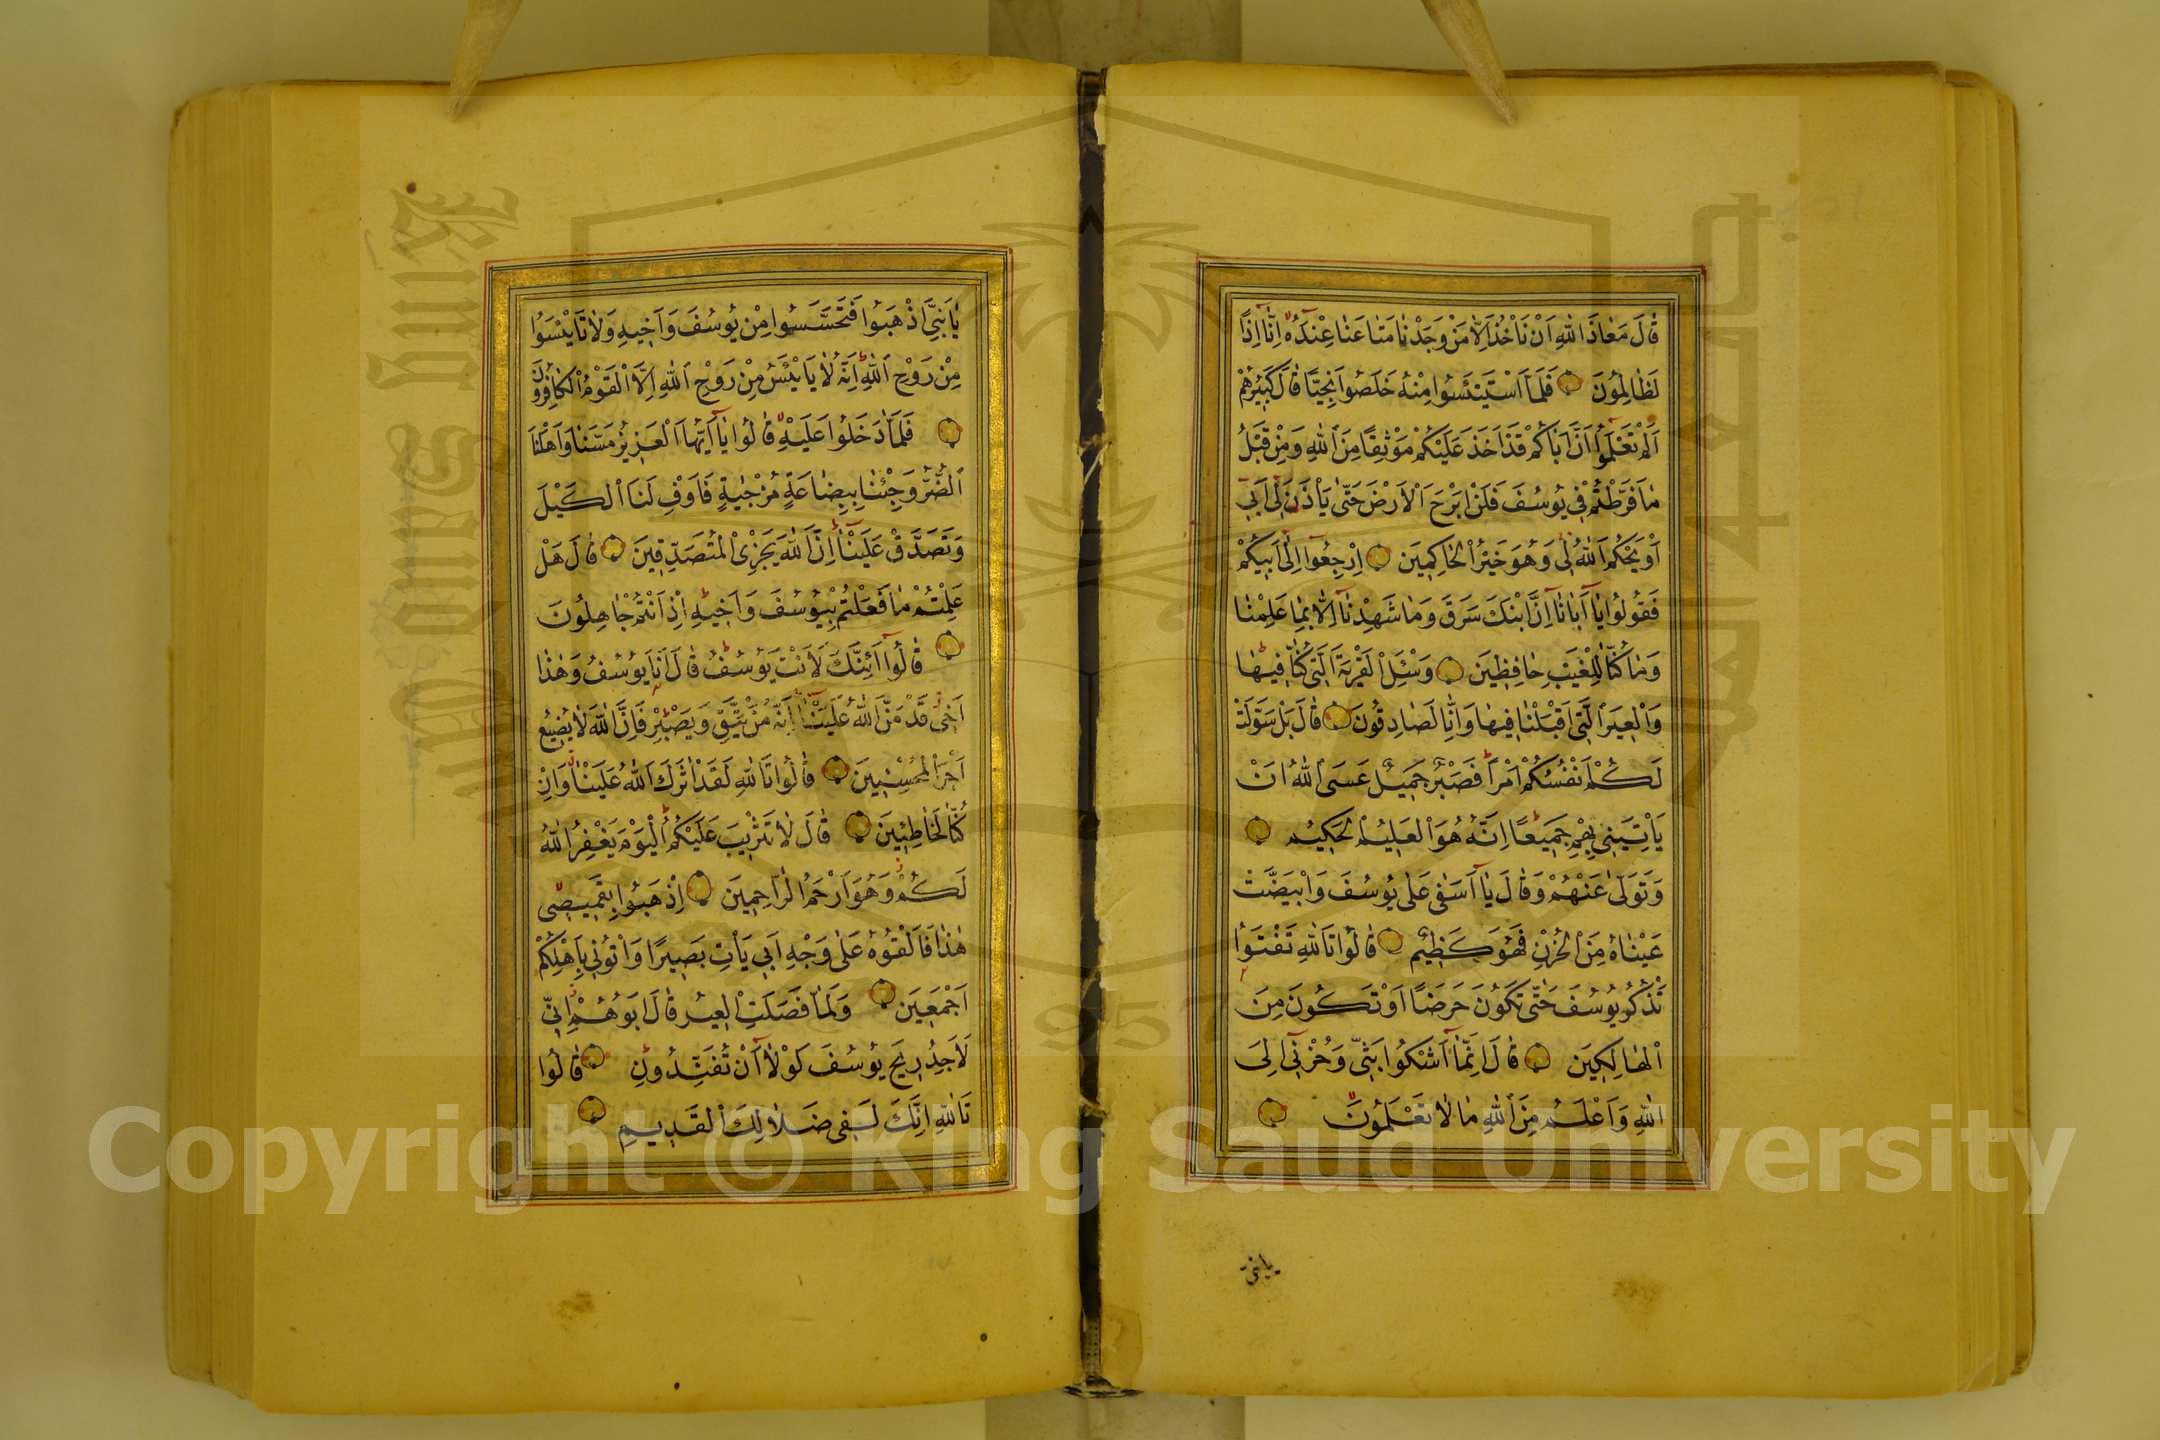 قَالَ مَعَاذَ اللّٰهِ اَنْ نَأْخُذَ اِلَّا مَنْ وَجَدْنَا مَتَاعَنَا عِنْدَهُ اِنَّا اِذًا
لَظَالِمُونَ فَلَمَّا اسْتَيْئَسُوا مِنْهُ خَلَصُوا نَجِيًّا قَالَ كَبِيرُهُمْ
اَلَمْ تَعْلَمُوا اَنَّ اَبَاكُمْ قَدْ اَخَذَ عَلَيْكُمْ مَوْثِقًا مِنَ اللّٰهِ وَمِنْ قَبْلُ
مَا فَرَّطْتُمْ فِي يُوسُفَ فَلَنْ اَبْرَحَ الْاَرْضَ حَتّٰى يَأْذَنَ لِي اَبِي
اَوْ يَحْكُمَ اللّٰهُ لِي وَهُوَ خَيْرُ الْحَاكِمِينَ اِرْجِعُوا اِلٰى اَبِيكُمْ
فَقُولُوا يَا اَبَانَا اِنَّ ابْنَكَ سَرَقَ وَمَا شَهِدْنَا اِلَّا بِمَا عَلِمْنَا
وَمَا كُنَّا لِلْغَيْبِ حَافِظِينَ وَسْئَلِ الْقَرْيَةَ الَّتِي كُنَّا فِيهَا
وَالْعِيرَ الَّتِي اَقْبَلْنَا فِيهَا وَاِنَّا لَصَادِقُونَ قَالَ بَلْ سَوَّلَتْ
لَكُمْ اَنْفُسُكُمْ اَمْرًا فَصَبْرٌ جَمِيلٌ عَسَى اللّٰهُ اَنْ
يَأْتِيَنِي بِهِمْ جَمِيعًا اِنَّهُ هُوَ الْعَلِيمُ الْحَكِيمُ
وَتَوَلّٰى عَنْهُمْ وَقَالَ يَا اَسَفٰى عَلٰى يُوسُفَ وَابْيَضَّتْ
عَيْنَاهُ مِنَ الْحُزْنِ فَهُوَ كَظِيمٌ قَالُوا تَاللّٰهِ تَفْتَؤُا
تَذْكُرُ يُوسُفَ حَتّٰى تَكُونَ حَرَضًا اَوْ تَكُونَ مِنَ
الْهَالِكِينَ قَالَ اِنَّمَا اَشْكُوا بَثِّي وَحُزْنِي اِلَى
اللّٰهِ وَاَعْلَمُ مِنَ اللّٰهِ مَا لَا تَعْلَمُونَ
يا بني
يَا بَنِيَّ اذْهَبُوا فَتَحَسَّسُوا مِنْ يُوسُفَ وَاَخِيهِ وَلَا تَايْئَسُوا
مِنْ رَوْحِ اللّٰهِ اِنَّهُ لَا يَايْئَسُ مِنْ رَوْحِ اللّٰهِ اِلَّا الْقَوْمُ الْكَافِرُونَ
فَلَمَّا دَخَلُوا عَلَيْهِ قَالُوا يَا اَيُّهَا الْعَزِيزُ مَسَّنَا وَاَهْلَنَا
الضُّرُّ وَجِئْنَا بِبِضَاعَةٍ مُزْجٰيةٍ فَاَوْفِ لَنَا الْكَيْلَ
وَتَصَدَّقْ عَلَيْنَا اِنَّ اللّٰهَ يَجْزِي الْمُتَصَدِّقِينَ قَالَ هَلْ
عَلِمْتُمْ مَا فَعَلْتُمْ بِيُوسُفَ وَاَخِيهِ اِذْ اَنْتُمْ جَاهِلُونَ
قَالُوا اَئِنَّكَ لَاَنْتَ يُوسُفُ قَالَ اَنَا يُوسُفُ وَهٰذَا
اَخِي قَدْ مَنَّ اللّٰهُ عَلَيْنَا اِنَّهُ مَنْ يَتَّقِ وَيَصْبِرْ فَاِنَّ اللّٰهَ لَا يُضِيعُ
اَجْرَ الْمُحْسِنِينَ قَالُوا تَاللّٰهِ لَقَدْ اٰثَرَكَ اللّٰهُ عَلَيْنَا وَاِنْ
كُنَّا لَخَاطِئِينَ قَالَ لَا تَثْرِيبَ عَلَيْكُمُ الْيَوْمَ يَغْفِرُ اللّٰهُ
لَكُمْ وَهُوَ اَرْحَمُ الرَّاحِمِينَ اِذْهَبُوا بِقَمِيصِي
هٰذَا فَاَلْقُوهُ عَلٰى وَجْهِ اَبِي يَأْتِ بَصِيرًا وَأْتُونِي بِاَهْلِكُمْ
اَجْمَعِينَ وَلَمَّا فَصَلَتِ الْعِيرُ قَالَ اَبُوهُمْ اِنِّي
لَاَجِدُ رِيحَ يُوسُفَ لَوْلَا اَنْ تُفَنِّدُونِ قَالُوا
تَاللّٰهِ اِنَّكَ لَفِي ضَلَالِكَ الْقَدِيمِ
King Saud University
1957
Copyright © King Saud University